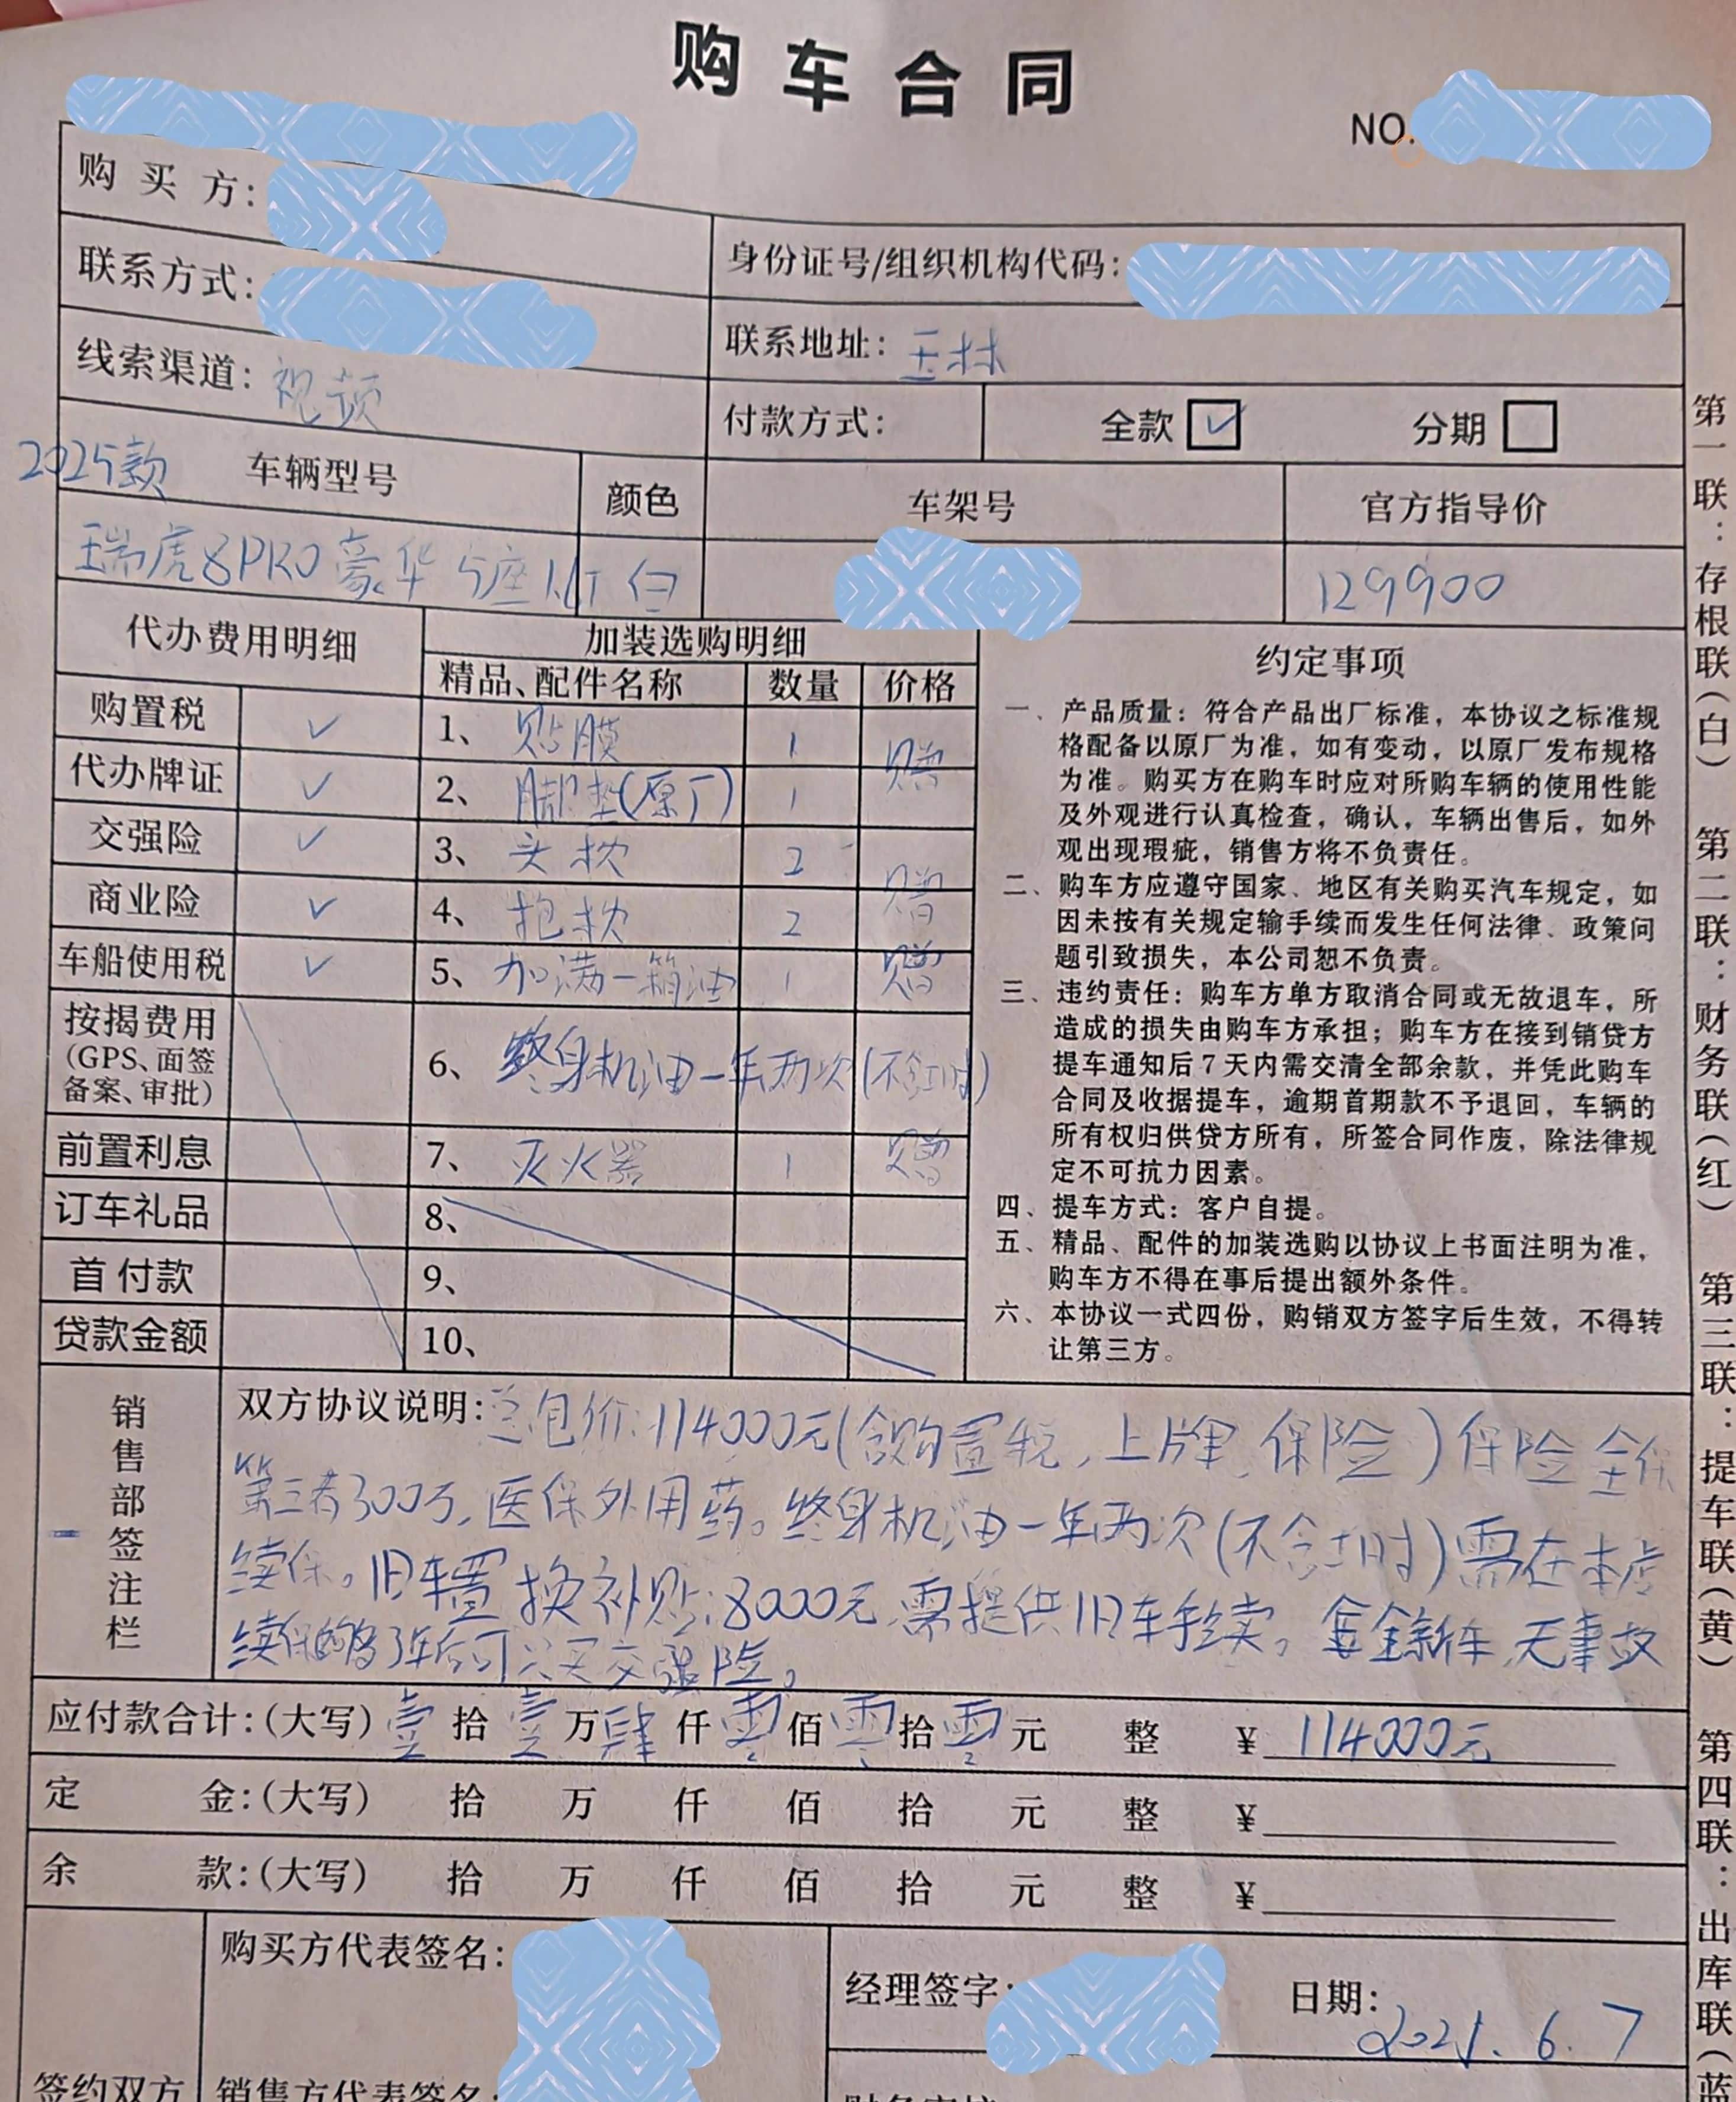 购车合同
NO.
购买方：
身份证号/组织机构代码：
联系方式：
联系地址：玉林
线索渠道：视频
付款方式： 全款 ✓ 分期
2025款
车辆型号 颜色 车架号 官方指导价
瑞虎8PRO豪华5座1.6T 白 129900
代办费用明细 加装选购明细 约定事项
精品、配件名称 数量 价格
购置税 ✓ 1、贴膜 1 赠
代办牌证 ✓ 2、脚垫(原厂) 1
交强险 ✓ 3、头枕 2 赠
商业险 ✓ 4、抱枕 2
车船使用税 ✓ 5、加满一箱油 1 赠
按揭费用
(GPS、面签
备案、审批)
6、终身机油一年两次(不含工时)
前置利息 7、灭火器 1 赠
订车礼品 8、
首付款 9、
贷款金额 10、
一、产品质量：符合产品出厂标准，本协议之标准规
格配备以原厂为准，如有变动，以原厂发布规格
为准。购买方在购车时应对所购车辆的使用性能
及外观进行认真检查，确认，车辆出售后，如外
观出现瑕疵，销售方将不负责任。
二、购车方应遵守国家、地区有关购买汽车规定，如
因未按有关规定输手续而发生任何法律、政策问
题引致损失，本公司恕不负责。
三、违约责任：购车方单方取消合同或无故退车，所
造成的损失由购车方承担；购车方在接到销贷方
提车通知后7天内需交清全部余款，并凭此购车
合同及收据提车，逾期首期款不予退回，车辆的
所有权归供贷方所有，所签合同作废，除法律规
定不可抗力因素。
四、提车方式：客户自提。
五、精品、配件的加装选购以协议上书面注明为准，
购车方不得在事后提出额外条件。
六、本协议一式四份，购销双方签字后生效，不得转
让第三方。
销售部签注栏
双方协议说明：总包价:114000元(含购置税,上牌,保险)保险全保
第三者300万,医保外用药。终身机油一年两次(不含工时)需在本店
续保。旧车置换补贴:8000元,需提供旧车手续。全新车,无事故
续保3年后可只买交强险。
应付款合计：(大写) 壹拾壹万肆仟零佰零拾零元整 ¥114000元
定金：(大写) 拾 万 仟 佰 拾 元 整 ¥
余款：(大写) 拾 万 仟 佰 拾 元 整 ¥
购买方代表签名：
经理签字： 日期：2025.6.7
签约双方 销售方代表签名：
第一联：存根联(白) 第二联：财务联(红) 第三联：提车联(黄) 第四联：出库联(蓝